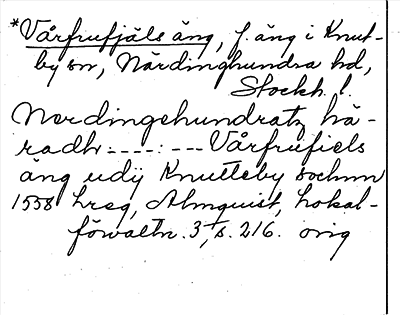 *Vårfrufjäls äng, f. äng i Knut-
by sn, Närdinghundra hd,
Stockh. l.
Nerdingehundratz hä-
radh----:---Vårfrufiels
äng udij Knutteby sochnn
1558 hrsg, Almquist, Lokal-
förvaltn. 3, s. 216. orig